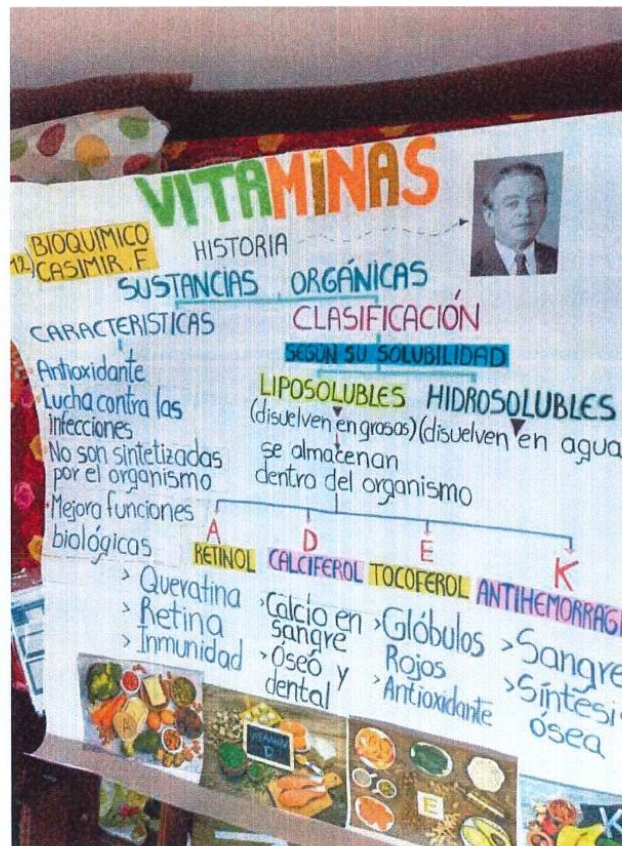 VITAMINAS
BIOQUIMICO
12) CASIMIR. F
HISTORIA
SUSTANCIAS ORGÁNICAS
CARACTERISTICAS
· Antioxidante
· Lucha contra las
infecciones
· No son sintetizadas
por el organismo
· Mejora funciones
biológicas
CLASIFICACIÓN
SEGÚN SU SOLUBILIDAD
LIPOSOLUBLES
(disuelven en grasas)
se almacenan
dentro del organismo
HIDROSOLUBLES
(disuelven en agua
A
RETINOL
> Queratina
> Retina
> Inmunidad
D
CALCIFEROL
> Calcio en
sangre
> Óseó y
dental
E
TOCOFEROL
> Glóbulos
Rojos
> Antioxidante
K
ANTIHEMORRAGI
> Sangre
> Síntesi
ósea
A
VITAMIN
D
E
K